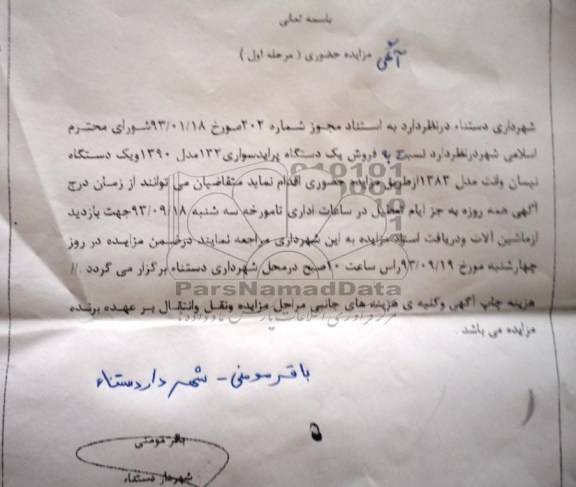 باسمه تعالی
آگهی مزایده حضوری ( مرحله اول )
شهرداری دستناء درنظردارد به استناد مجوز شماره ۲۰۲مورخ ۹۳/۰۱/۱۸شورای محترم
اسلامی شهردرنظردارد نسبت به فروش یک دستگاه پرایدسواری۱۳۲مدل ۱۳۹۰ویک دستگاه
نیسان وانت مدل ۱۳۸۳ازطریق مزایده حضوری اقدام نماید متقاضیان می توانند از زمان درج
آگهی همه روزه به جز ایام تعطیل در ساعات اداری تامورخه سه شنبه ۹۳/۰۹/۱۸جهت بازدید
ازماشین آلات ودریافت اسناد مزایده به این شهرداری مراجعه نمایند درضمن مزایده در روز
چهارشنبه مورخ ۹۳/۰۹/۱۹راس ساعت ۱۰صبح درمحل شهرداری دستناء برگزار می گردد .//
ParsNamadData
هزینه چاپ آگهی وکلیه ی هزینه های جانبی مراحل مزایده ونقل وانتقال بر عهده برنده
مزایده می باشد .
باقر مومنی - شهردار دستناء
باقر مومنی
شهردار دستناء